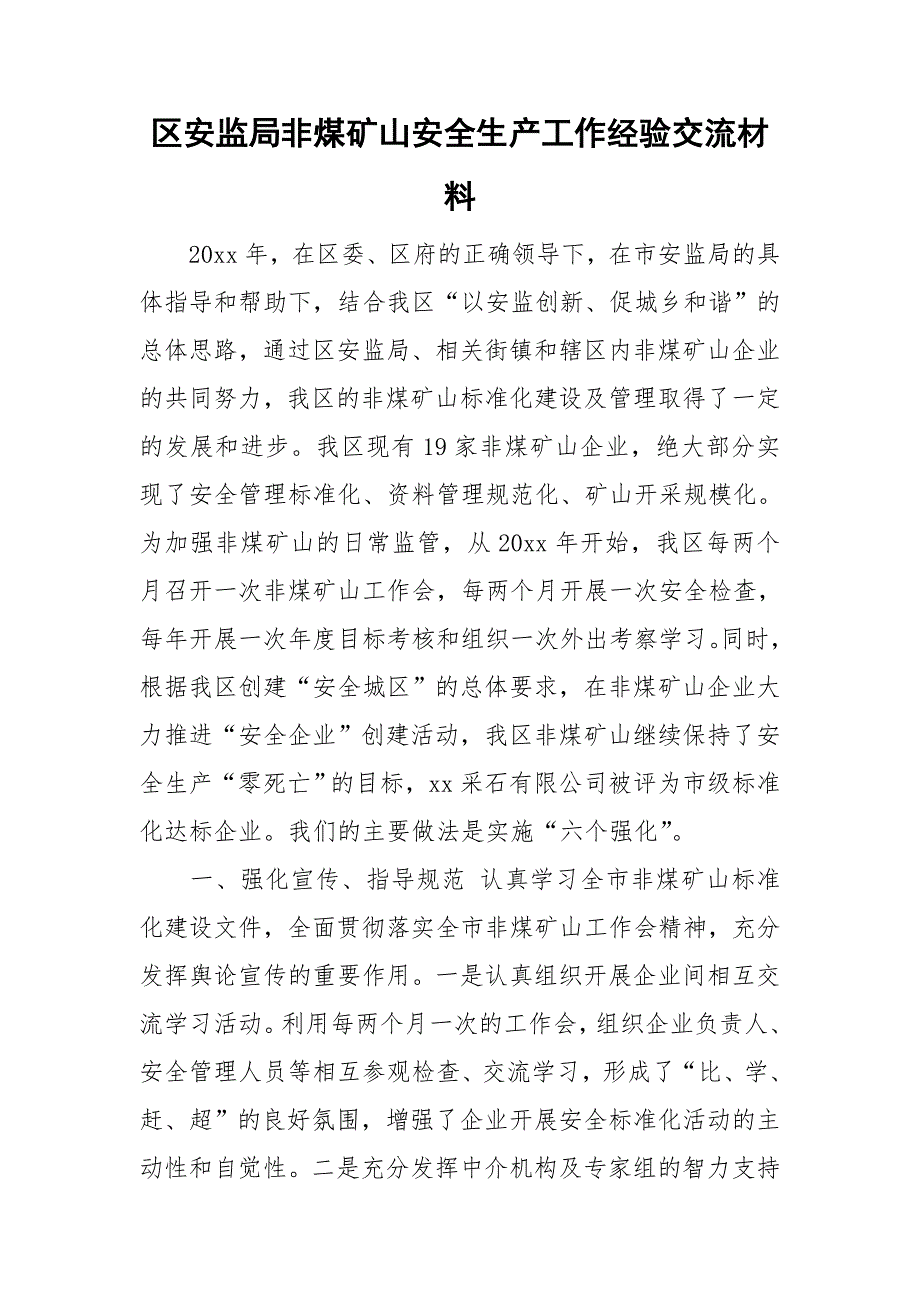 区安监局非煤矿山安全生产工作经验交流材
料
20xx 年，在区委、区府的正确领导下，在市安监局的具
体指导和帮助下，结合我区“以安监创新、促城乡和谐”的
总体思路，通过区安监局、相关街镇和辖区内非煤矿山企业
的共同努力，我区的非煤矿山标准化建设及管理取得了一定
的发展和进步。我区现有 19 家非煤矿山企业，绝大部分实
现了安全管理标准化、资料管理规范化、矿山开采规模化。
为加强非煤矿山的日常监管，从 20xx 年开始，我区每两个
月召开一次非煤矿山工作会，每两个月开展一次安全检查，
每年开展一次年度目标考核和组织一次外出考察学习。同时，
根据我区创建“安全城区”的总体要求，在非煤矿山企业大
力推进“安全企业”创建活动，我区非煤矿山继续保持了安
全生产“零死亡”的目标，xx 采石有限公司被评为市级标准
化达标企业。我们的主要做法是实施“六个强化”。
一、强化宣传、指导规范 认真学习全市非煤矿山标准
化建设文件，全面贯彻落实全市非煤矿山工作会精神，充分
发挥舆论宣传的重要作用。一是认真组织开展企业间相互交
流学习活动。利用每两个月一次的工作会，组织企业负责人、
安全管理人员等相互参观检查、交流学习，形成了“比、学、
赶、超”的良好氛围，增强了企业开展安全标准化活动的主
动性和自觉性。二是充分发挥中介机构及专家组的智力支持